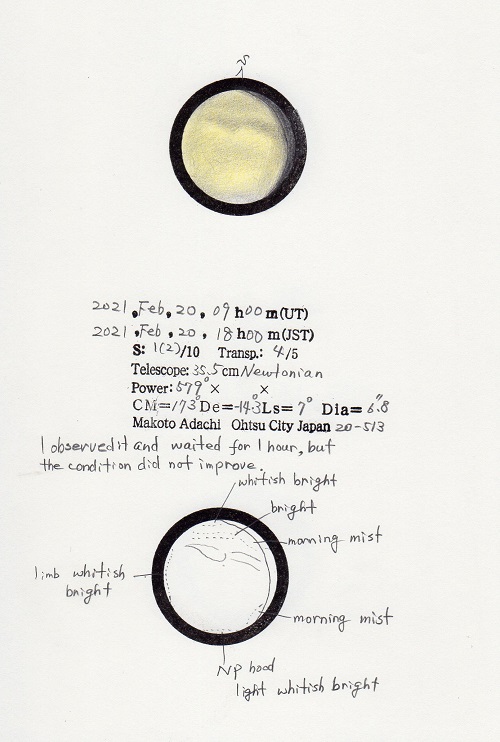 S
2021, Feb, 20, 09 h00 m(UT)
2021, Feb, 20, 18 h00 m(JST)
S: 1(2)/10 Transp.: 4/5
Telescope: 35.5cm Newtonian
Power: 579× ×
CM=173° De=-14.3 Ls=7° Dia=6.8"
Makoto Adachi Ohtsu City Japan 20-513
I observed it and waited for 1 hour, but
the condition did not improve.
whitish bright
bright
morning mist
limb whitish
bright
morning mist
Np hood
light whitish bright